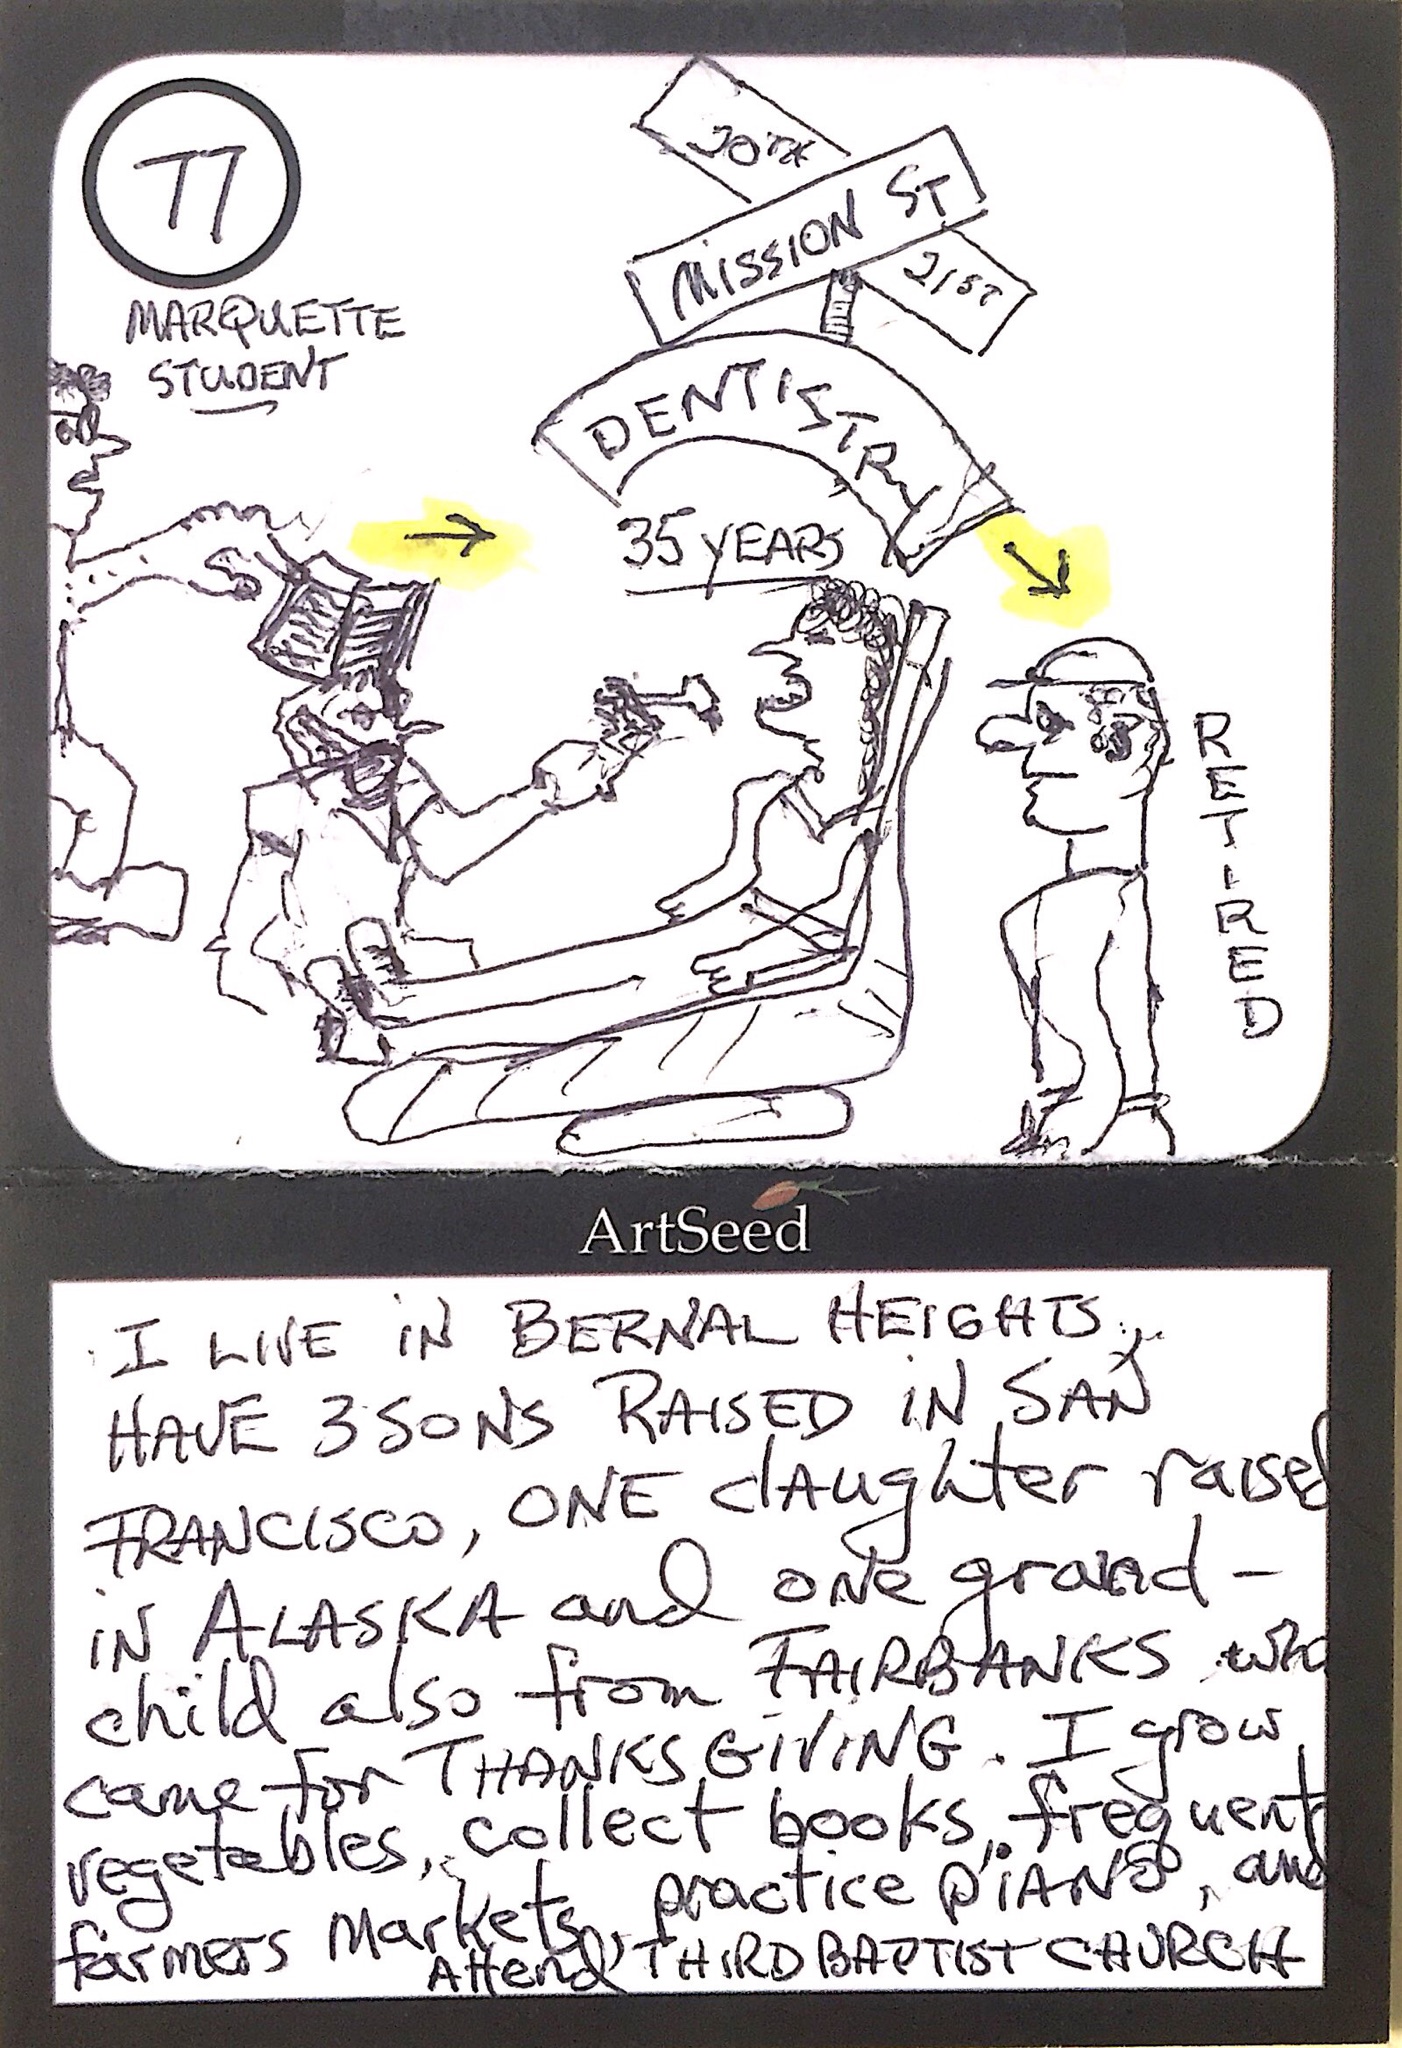 77
MARQUETTE
STUDENT
20TH
MISSION ST
21ST
DENTISTRY
35 YEARS
RETIRED
ArtSeed
I LIVE IN BERNAL HEIGHTS,
HAVE 3 SONS RAISED IN SAN
FRANCISCO, ONE dAughter raised
IN ALASKA and ONe grand-
child also from FAIRBANKS who
came for THANKSGIVING. I grow
vegetables, collect books, frequent
farmers markets, practice PIANO, and
Attend THIRD BAPTIST CHURCH